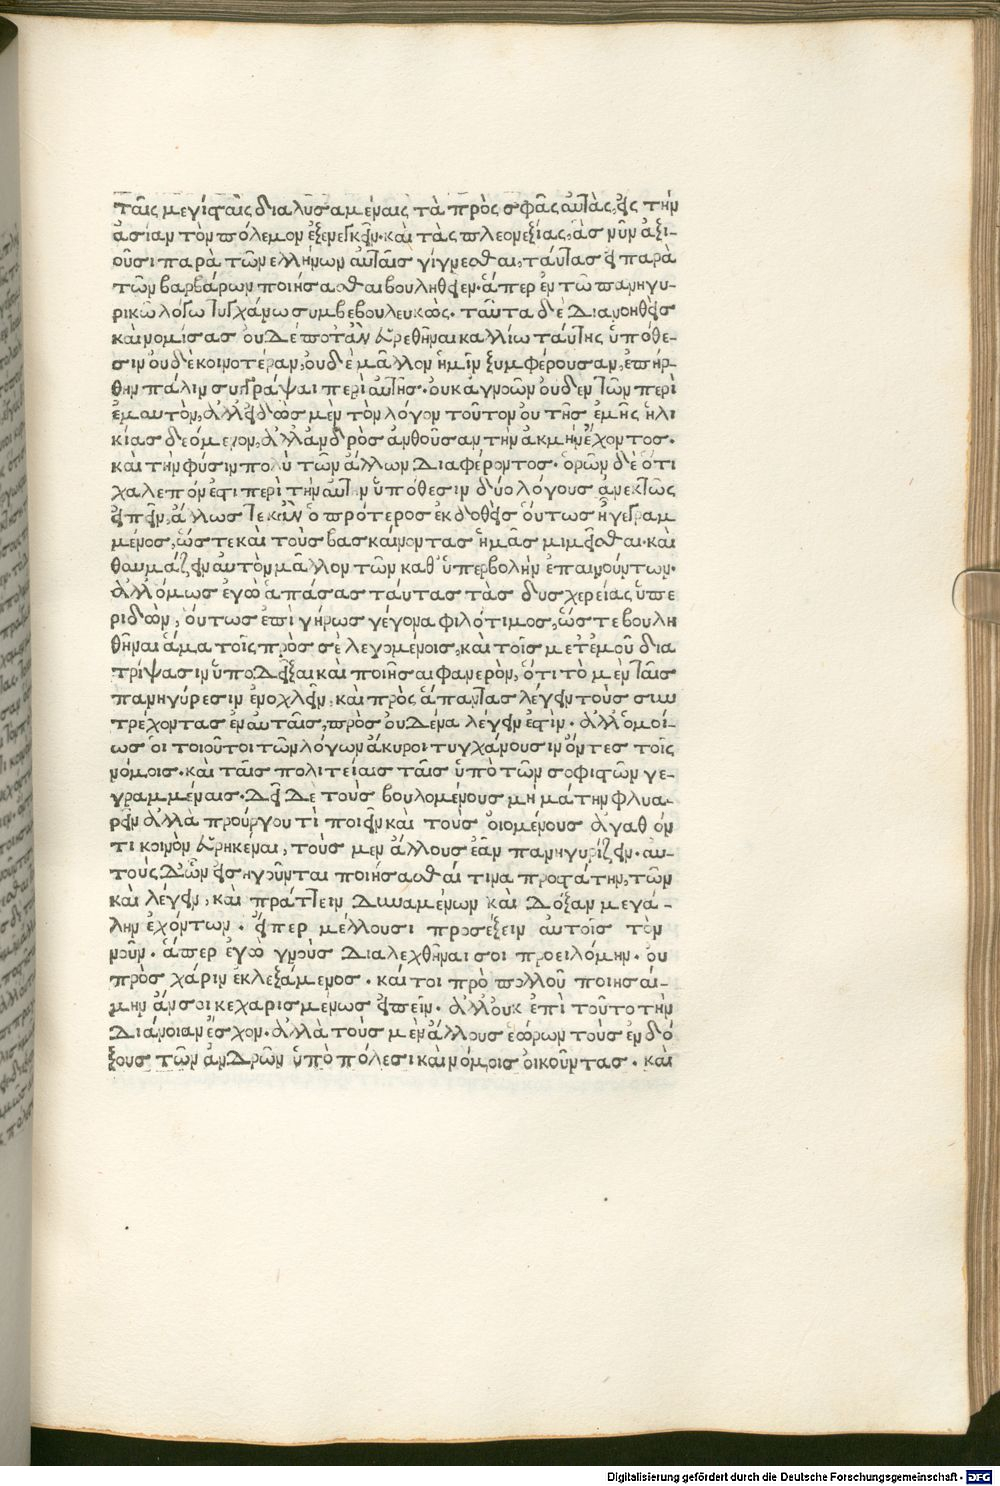 ταῖς μεγίσταις διαλυσαμέναις τὰ πρὸς σφᾶς αὐτὰς, εἰς τὴν
ἀσίαν τὸν πόλεμον ἐξενεγκεῖν· καὶ τὰς πλεονεξίας, ἃς νῦν ἀξι-
οῦσι παρὰ τῶν ελλήνων αὐταῖς γίγνεσθαι, ταύτας εἰ παρὰ
τῶν βαρβάρων ποιήσασθαι βουληθεῖεν· ἅπερ ἐν τῶ πανηγυ-
ρικῶ λόγω τυγχάνω συμβεβουλευκώς. ταῦτα δὲ διανοηθεὶς
καὶ νομίσας οὐδέποτ' ἂν εὑρεθῆναι καλλίω ταύτης ὑπόθε-
σιν οὐδὲ κοινοτέραν, οὐδὲ μᾶλλον ἡμῖν ξυμφέρουσαν, ἐπήρ-
θην πάλιν συγγράψαι περὶ αὐτῆς· οὐκ ἀγνοῶν οὐδὲν τῶν περὶ
ἐμαυτὸν, ἀλλ' εἰδὼς μὲν τὸν λόγον τοῦτον οὐ τῆς ἐμῆς ἡλι
κίας δεόμενον, ἀλλ' ἀνδρὸς ἀνθοῦσαν τὴν ἀκμὴν ἔχοντος.
καὶ τὴν φύσιν πολὺ τῶν ἄλλων διαφέροντος· ὁρῶν δὲ ὅτι
χαλεπόν ἐστι περὶ τὴν αὐτὴν ὑπόθεσιν δύο λόγους ἀνεκτῶς
εἰπεῖν, ἄλλως τε κἂν ὁ πρότερος ἐκδοθεὶς οὕτως ἦ γεγραμ
μένος, ὥστε καὶ τοὺς βασκαίνοντας ἡμᾶς μιμεῖσθαι· καὶ
θαυμάζειν αὐτὸν μᾶλλον τῶν καθ' ὑπερβολὴν ἐπαινούντων.
ἀλλ' ὅμως ἐγὼ ἁπάσας ταύτας τὰς δυσχερείας ὑπε
ριδὼν, οὕτως ἐπὶ γήρως γέγονα φιλότιμος, ὥστε βουλη
θῆναι ἅμα τοῖς πρὸς σὲ λεγομένοις, καὶ τοῖς μετ' ἐμοῦ δια
τρίψασιν ὑποδεῖξαι καὶ ποιῆσαι φανερὸν, ὅτι τὸ μὲν ταῖς
πανηγύρεσιν ἐνοχλεῖν, καὶ πρὸς ἅπαντας λέγειν τοὺς συν
τρέχοντας ἐν αὐταῖς, πρὸς οὐδένα λέγειν ἐστίν· ἀλλ' ὁμοί-
ως οἱ τοιοῦτοι τῶν λόγων ἄκυροι τυγχάνουσιν ὄντες τοῖς
νόμοις· καὶ ταῖς πολιτείαις ταῖς ὑπὸ τῶν σοφιστῶν γε-
γραμμέναις. δεῖ δὲ τοὺς βουλομένους μὴ μάτην φλυα-
ρεῖν ἀλλὰ προύργου τὶ ποιεῖν καὶ τοὺς οἰομένους ἀγαθόν
τι κοινὸν εὑρηκέναι, τοὺς μεν ἄλλους ἐᾶν πανηγυρίζειν· αὐ-
τοὺς δ' ὧν εἰσηγοῦνται ποιήσασθαί τινα προστάτην, τῶν
καὶ λέγειν, καὶ πράττειν δυναμένων καὶ δόξαν μεγά-
λην ἐχόντων· εἴπερ μέλλουσι προσέξειν αὐτοῖς τὸν
νοῦν· ἅπερ ἐγὼ γνοὺς διαλεχθῆναι σοι προειλόμην· οὐ
πρὸς χάριν ἐκλεξάμενος. καίτοι πρὸ πολλοῦ ποιησαί-
μην ἄν σοι κεχαρισμένως εἰπεῖν· ἀλλ' οὐκ ἐπὶ τοῦτο τὴν
διάνοιαν ἔσχον· ἀλλὰ τοὺς μὲν ἄλλους ἑώρων τοὺς ἐνδό
ξους τῶν ἀνδρῶν ὑπὸ πόλεσι καὶ νόμοις οἰκοῦντας· καὶ
Digitalisierung gefördert durch die Deutsche Forschungsgemeinschaft - DFG